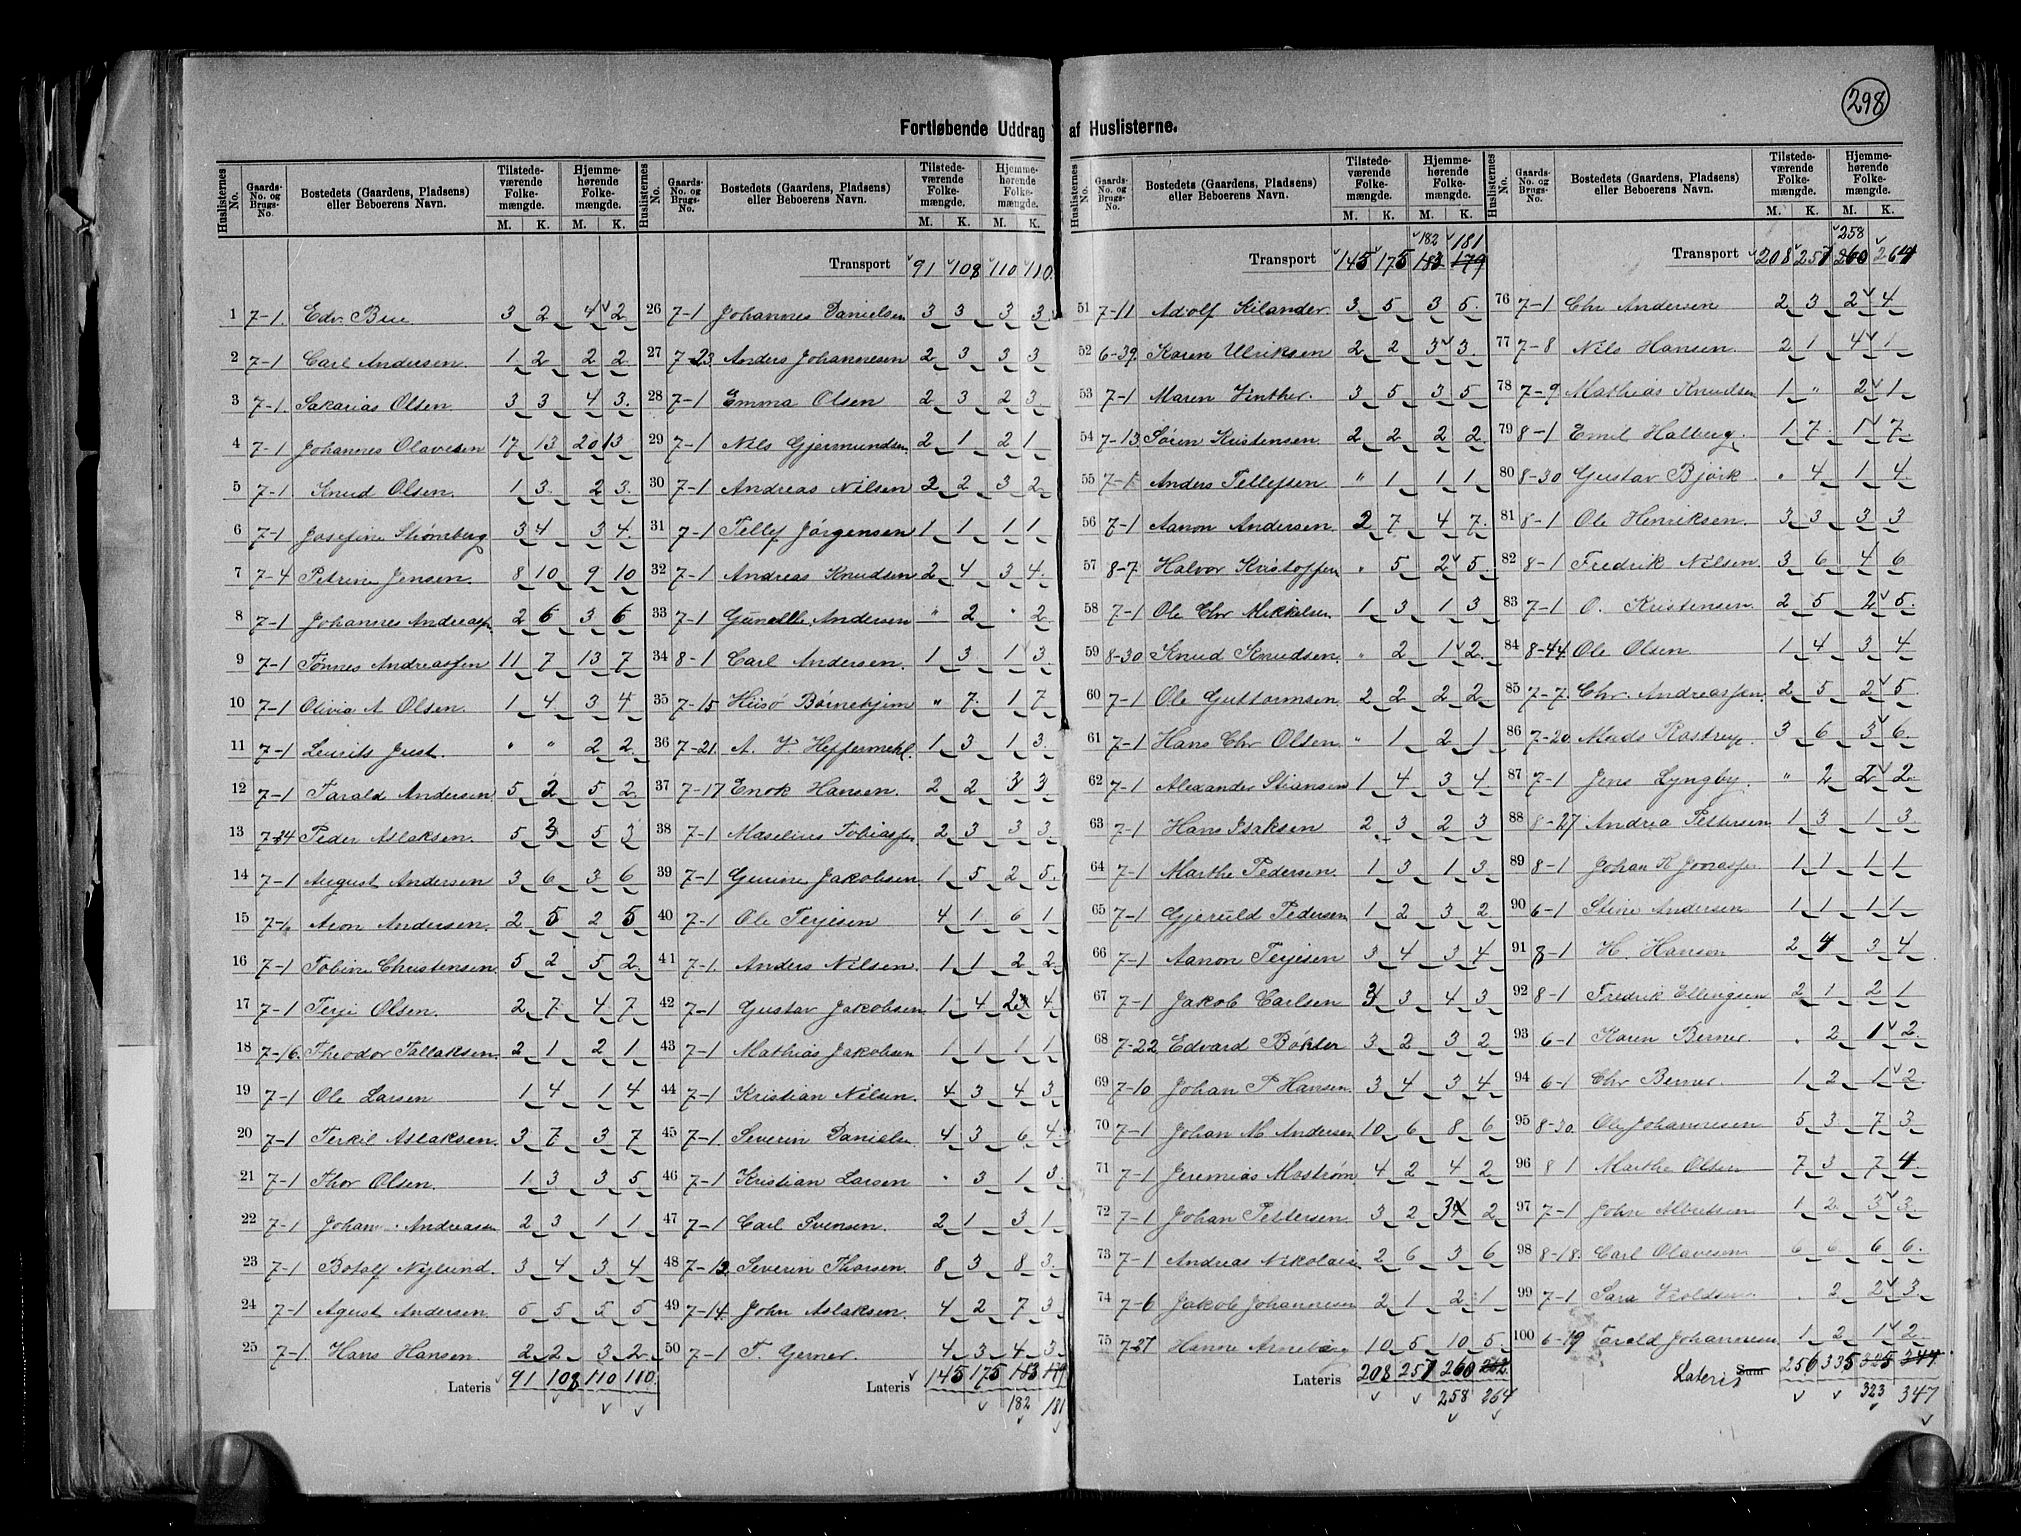 298
Fortløbende Uddrag af Huslisterne.
Huslisternes No. Gaards-No. og Brugs-No. Bostedets (Gaardens, Pladsens) eller Beboerens Navn. Tilstedeværende Folkemængde. M. K. Hjemmehørende Folkemængde. M. K.
1 7-1. Edv. Bue 3 2 4 2
2 7-1 Carl Andersen. 1 2 2 2
3 7-1. Sakarias Olsen 3 3 4 3.
4 7-1 Johannes Olavesen 17 13 20 13
5 7-1. Knud Olsen. 1 3. 2 3.
6 7-1 Josefine Strømberg 3 4 3 4.
7 7-4 Petrine Jensen 8 10 9 10
8 7-1 Johannes Andreasf. 2 6 3 6
9 7-1 Tønnes Andreassen 11 7 13 7
10 7-1 Olivia A Olsen. 1 4 3 4
11 7-1 Laurits Just. " " 2 2.
12 7-1 Tarald Andersen. 5 2 5 2
13 7-34 Peder Aslaksen. 5 3 5 3
14 7-1 August Andersen 3 6 3 6
15 7-1. Aron Andersen. 2 5 2 5
16 7-1 Tobine Christensen. 5 2 5 2
17 7-1 Terje Olsen. 2 7 4 7
18 7-16. Theodor Tallaksen. 2 1 2 1
19 7-1 Ole Larsen 1 4 1 4
20 7-1 Terkil Aslaksen. 3 7 3 7
21 7-1 Thor Olsen. 1 3 3 5
22 7-1 Johan Andreassen 2 3 1 1
23 7-1 Botolf Nylund. 3 4 3 4
24 7-1 Agust Andersen 5 5 5 5
25 7-1. Hans Hansen. 2 2 3 2
Lateris 91 108 110 110.
Huslisternes No. Gaards-No. og Brugs-No. Bostedets (Gaardens, Pladsens) eller Beboerens Navn. Tilstedeværende Folkemængde. M. K. Hjemmehørende Folkemængde. M. K.
Transport 91 108 110 110.
26 7-1 Johannes Danielsen 3 3 3 3
27 7-23 Anders Johannesen 2 3 3 3
28 7-1 Emma Olsen 2 3 2 3
29 7-1 Nils Gjermundsen 2 1 2 1
30 7-1 Andreas Nilsen 2 2 3 2
31 7-1 Tellef Jörgensen 1 1 1 1
32 7-1 Andreas Knudsen 2 4 3 4.
33 7-1 Gunelle Andersen " 2 " 2
34 8-1 Carl Andersen. 1 3 1 3.
35 7-15 Hisö Börnehjem " 7. 1 7
36 7-21. A. V. Heffermehl. 1 3 1 3.
37 7-17 Enok Hansen. 2 2 3 3
38 7-1 Maselius Tobiassen 2 3 3 3.
39 7-1 Gurine Jakobsen. 1 5 2 5.
40 7-1 Ole Terjesen 4 1 6 1
41 7-1. Anders Nilsen. 1 1 2 2
42 7-1 Gustav Jakobsen 1 4 2 4
43 7-1 Mathias Jakobsen 1 1 1 1
44 7-1 Kristian Nilsen. 4 3 4 3
45 7-1 Severin Danielsen 4 3 6 4.
46 7-1 Kristian Larsen " 3 1 3.
47 7-1 Carl Svensen. 2 1 3 1
48 7-12 Severin Thorsen. 8 3 8 3.
49 7-14. John Aslaksen. 4 2 7 3
50 7-1 T. Gerner. 4 3 4 3
Lateris 145 175 183 179
182 181
Huslisternes No. Gaards-No. og Brugs-No. Bostedets (Gaardens, Pladsens) eller Beboerens Navn. Tilstedeværende Folkemængde. M. K. Hjemmehørende Folkemængde. M. K.
182 181
Transport 145 175 183 179
51 7-11 Adolf Kilander. 3 5 3 5.
52 6-39. Karen Ulriksen 2 2 3 3.
53 7-1 Maren Vinther. 3 5 3 5
54 7-13 Sören Kristensen 2 2 2 2
55 7-1 Anders Tellefsen " 1 1 1
56 7-1 Aanon Andersen. 2 7 4 7.
57 8-7. Halvor Kristoffen " 5 2 5.
58 7-1 Ole Chr Mikkelsen 1 3 1 3
59 8-30 Knud Knudsen. " 2 1 2.
60 7-1 Ole Guttormsen 2 2 2 2
61 7-1 Hans Chr Olsen " 1 2 1
62 7-1 Alexander Stiansen 1 4 3 4
63 7-1 Hans Isaksen 2 3 2 3
64 7-1 Marthe Pedersen. 1 3 1 3.
65 7-1 Gjeruld Pedersen 1 2 3 2
66 7-1 Aanon Terjesen 3 4 3 4
67 7-1 Jakob Carlsen 3 3 4 3
68 7-22 Edvard Böhler 3 2 3 2
69 7-10 Johan P Hansen. 3 4 3 4
70 7-1 Johan M. Andersen 10 6 8 6
71 7-1 Jeremias Moström 4 2 4 2
72 7-1 Johan Pettersen. 3 2 3 2
73 7-1 Andreas Nikolai 2 6 3 6
74 7-6 Jakob Johannesen 2 1 2 1
75 7-27 Hanne Arneberg 10 5 10 5
Lateris 208 257 260 262
258 264
Huslisternes No. Gaards-No. og Brugs-No. Bostedets (Gaardens, Pladsens) eller Beboerens Navn. Tilstedeværende Folkemængde. M. K. Hjemmehørende Folkemængde. M. K.
258
Transport 208 257 260 264
76 7-1 Chr Andersen 2 3 2 4
77 7-8 Nils Hansen. 2 1 4 1
78 7-9 Mathias Knudsen 1 " 2 1
79 8-1 Emil Halberg. 1 7. 1 7
80 8-30 Gustav Björk " 4 1 4
81 8-1 Ole Henriksen. 3 3 3 3
82 8-1 Fredrik Nilsen 3 6 4 6
83 7-1 O. Kristensen 2 5 2 5.
84 8-44 Ole Olsen 1 4 3 4
85 7-7. Chr. Andreassen. 2 5 2 5
86 7-20 Mads Rostrup. 3 6 3 6.
87 7-1 Jens Lyngby. " 2 2 2.
88 8-27 Andrea Pettersen 1 3 1 3
89 8-1 Johan K Jonassen 1 1 1 1
90 6-1 Stine Andersen 1 1 1 1
91 8-1 H. Hanson 2 4 3 4
92 8-1 Fredrik Ellingsen 2 1 2 1
93 6-1 Karen Berner. " 2 1 2
94 6-1 Chr Berner. 1 2 1 2
95 8-30. Ole Johannesen 5 3 7 3
96 8 1 Marthe Olsen 7 3 7 4.
97 7-1 John Albretsen 1 2 3 3
98 8-18. Carl Olavesen 6 6 6 6.
99 7-1 Sara 2 2 3
100 6-19 Tarald Johannesen 1 2 1 2
Lateris Sum 256 335 325 344
323 347